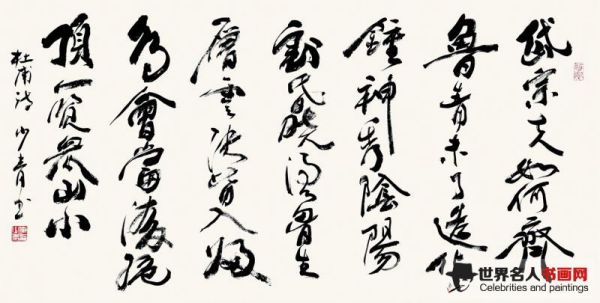 岱宗夫如何齊
魯青未了造化
鍾神秀陰陽
割昏曉盪胸生
層雲決眥入歸
鳥會當凌絕
頂一覽眾山小
杜甫诗 少青书
世界名人书画网
Celebrities and paintings